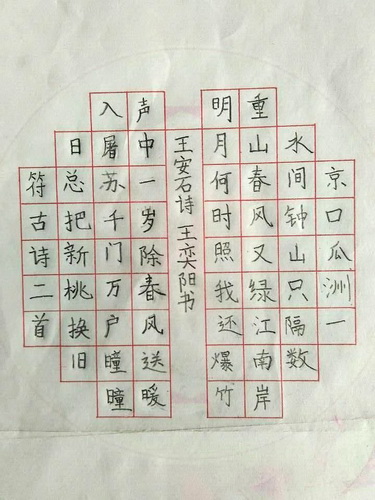 京口瓜洲一
水间钟山只隔数
重山春风又绿江南岸
明月何时照我还爆竹
王安石诗 王奕阳书
声中一岁除春风送暖
入屠苏千门万户瞳瞳
日总把新桃换旧
符古诗二首